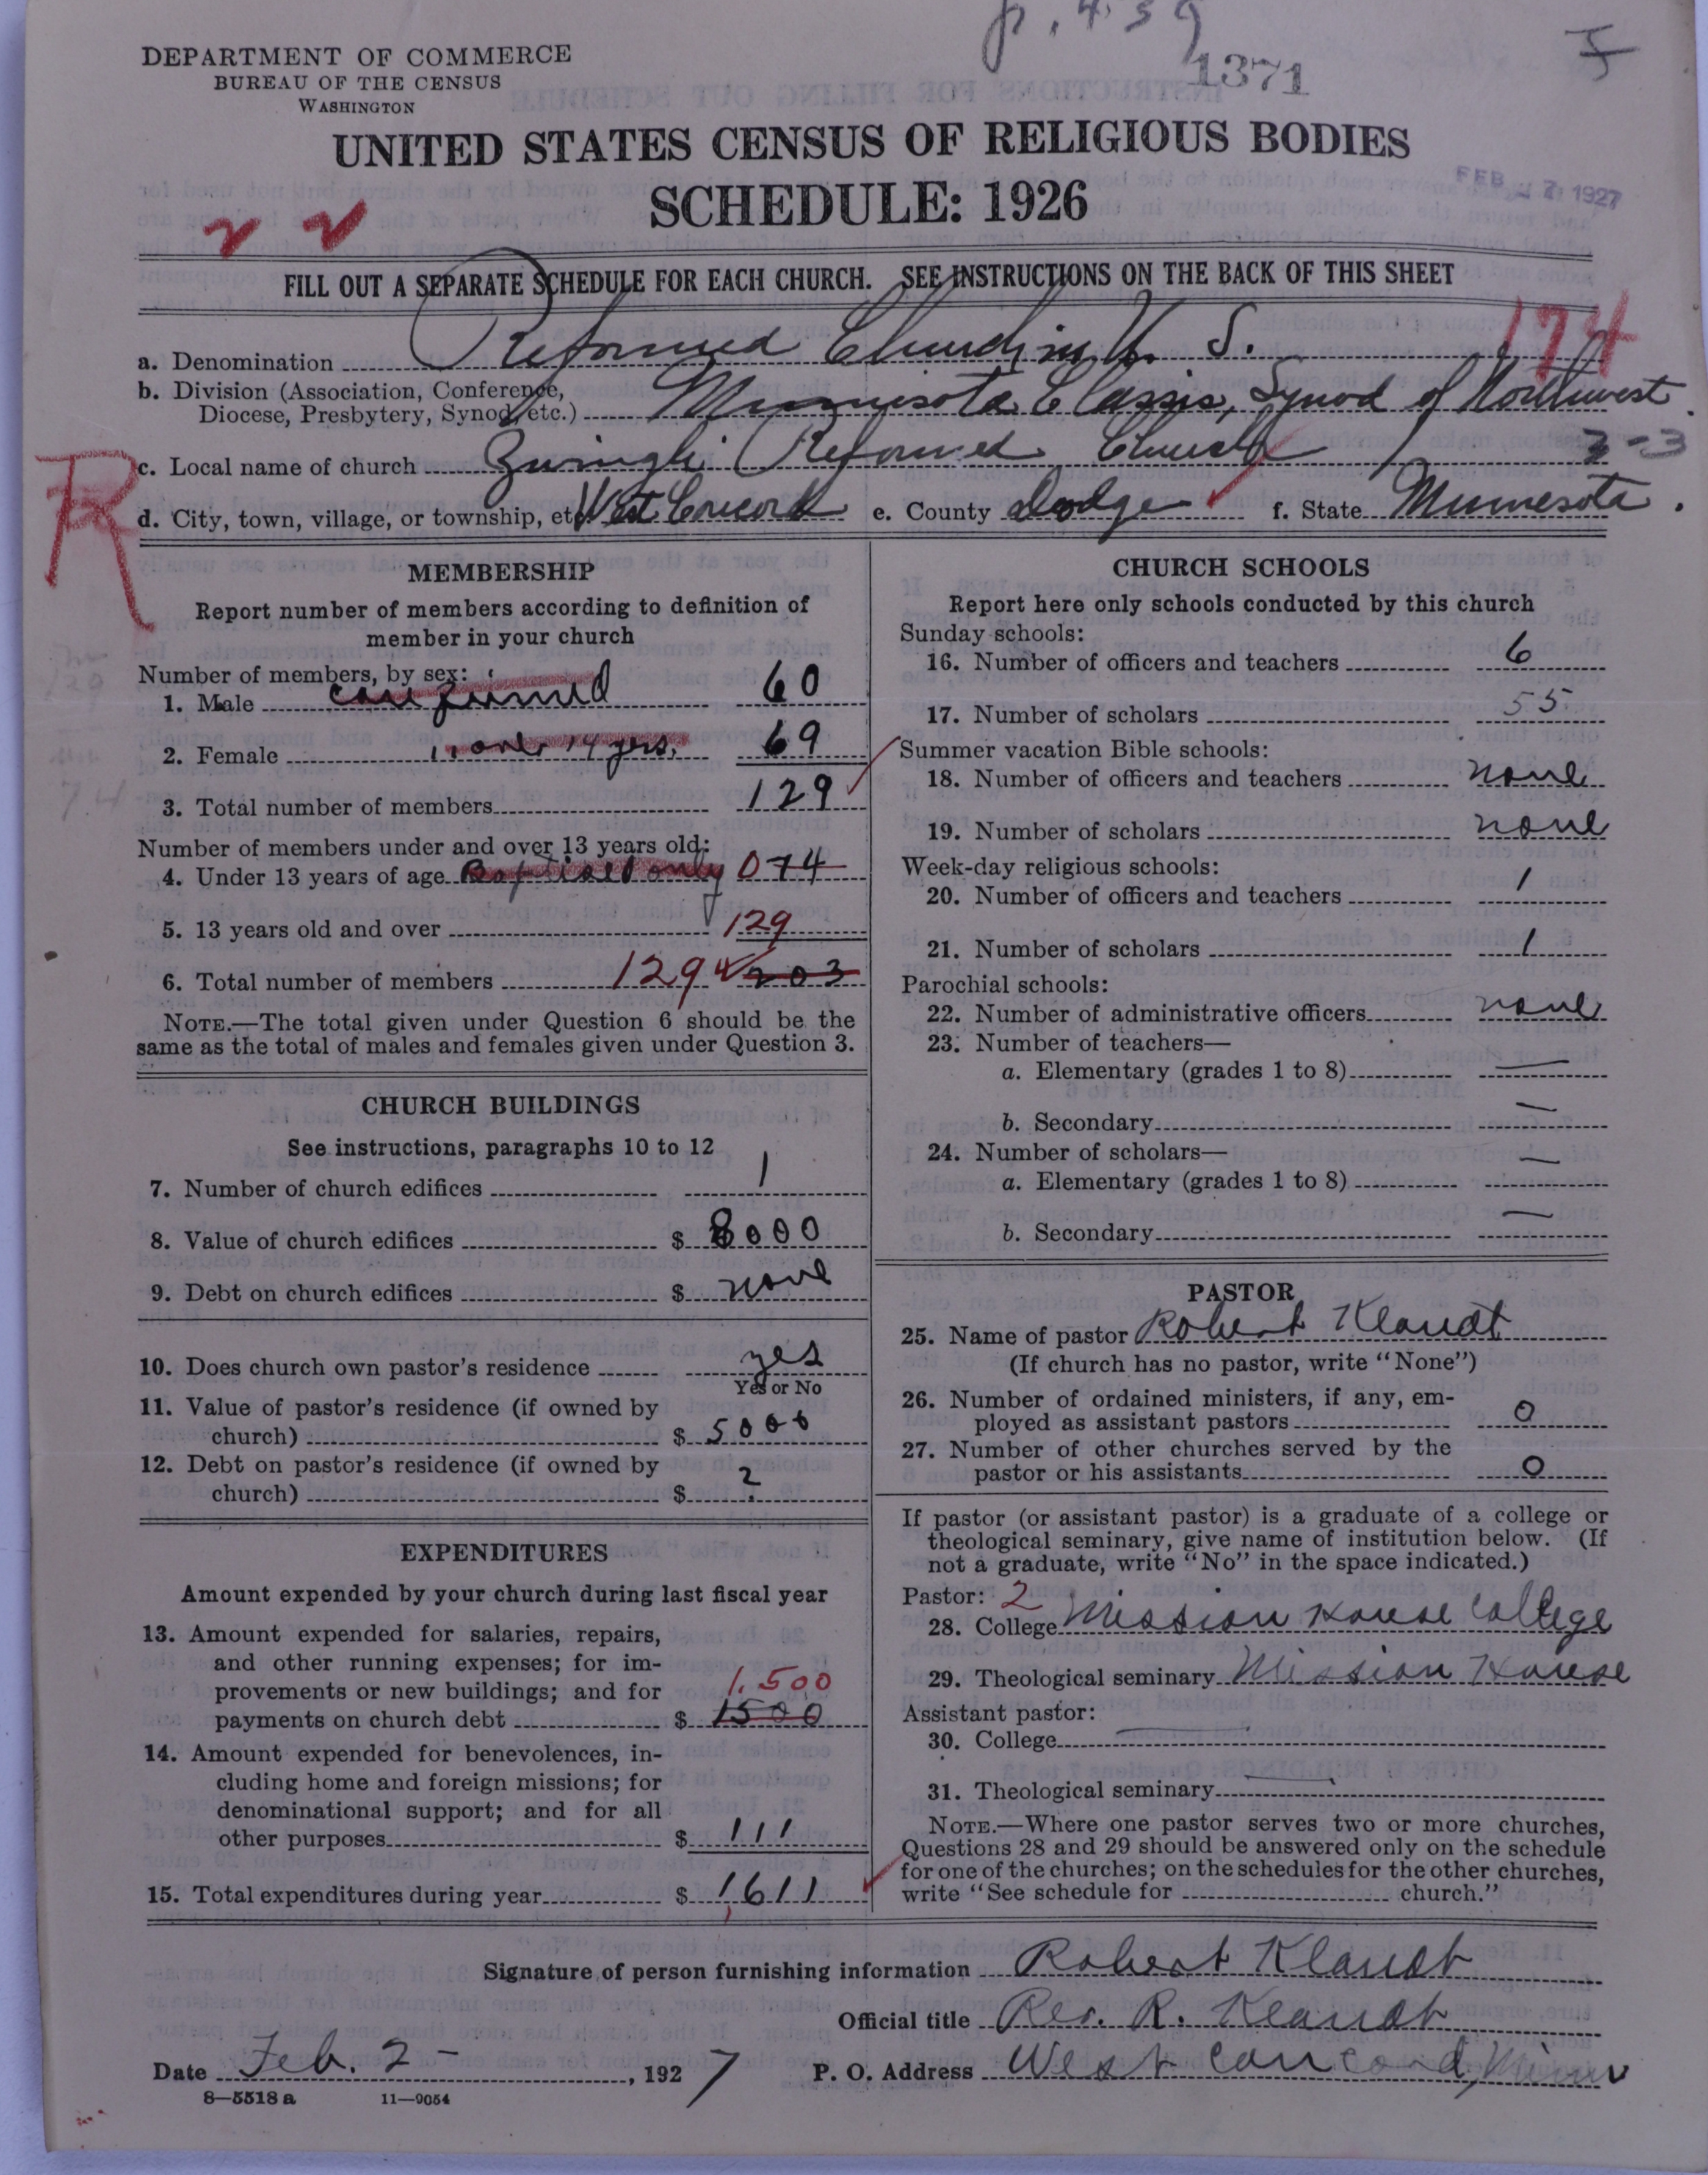 p. 439
1371
DEPARTMENT OF COMMERCE
BUREAU OF THE CENSUS
WASHINGTON
UNITED STATES CENSUS OF RELIGIOUS BODIES
SCHEDULE: 1926
FEB 1927
FILL OUT A SEPARATE SCHEDULE FOR EACH CHURCH. SEE INSTRUCTIONS ON THE BACK OF THIS SHEET
174
a. Denomination Reformed Church in U. S.
b. Division (Association, Conference,
Diocese, Presbytery, Synod, etc.) Minnesota Classis, Synod of Northwest.
c. Local name of church Zwingli Reformed Church 3-3
R
d. City, town, village, or township, etc. West Concord e. County Dodge f. State Minnesota.
MEMBERSHIP
Report number of members according to definition of
member in your church
Number of members, by sex:
1. Male confirmed 60
2. Female over 14 yrs. 69
3. Total number of members 129
Number of members under and over 13 years old:
4. Under 13 years of age Baptised only 0 74
5. 13 years old and over 129
6. Total number of members 129 203
NOTE.—The total given under Question 6 should be the
same as the total of males and females given under Question 3.
CHURCH BUILDINGS
See instructions, paragraphs 10 to 12
7. Number of church edifices 1
8. Value of church edifices $ 8000
9. Debt on church edifices $ none
10. Does church own pastor's residence yes
Yes or No
11. Value of pastor's residence (if owned by
church) $ 5000
12. Debt on pastor's residence (if owned by
church) $ ?
EXPENDITURES
Amount expended by your church during last fiscal year
13. Amount expended for salaries, repairs,
and other running expenses; for im-
provements or new buildings; and for 1,500
payments on church debt $ 1500
14. Amount expended for benevolences, in-
cluding home and foreign missions; for
denominational support; and for all
other purposes $ 111
15. Total expenditures during year $ 1611
CHURCH SCHOOLS
Report here only schools conducted by this church
Sunday schools:
16. Number of officers and teachers 6
17. Number of scholars 55
Summer vacation Bible schools:
18. Number of officers and teachers none
19. Number of scholars none
Week-day religious schools:
20. Number of officers and teachers 1
21. Number of scholars 1
Parochial schools:
22. Number of administrative officers none
23. Number of teachers—
a. Elementary (grades 1 to 8) —
b. Secondary —
24. Number of scholars— —
a. Elementary (grades 1 to 8)
b. Secondary —
PASTOR
25. Name of pastor Robert Klaudt
(If church has no pastor, write "None")
26. Number of ordained ministers, if any, em-
ployed as assistant pastors 0
27. Number of other churches served by the
pastor or his assistants 0
If pastor (or assistant pastor) is a graduate of a college or
theological seminary, give name of institution below. (If
not a graduate, write "No" in the space indicated.)
Pastor: 2
28. College Mission House College
29. Theological seminary Mission House
Assistant pastor:
30. College
31. Theological seminary
NOTE.—Where one pastor serves two or more churches,
Questions 28 and 29 should be answered only on the schedule
for one of the churches; on the schedules for the other churches,
write "See schedule for church."
Signature of person furnishing information Robert Klaudt
Official title Rev. R. Klaudt
Date Feb. 2 -, 1927 P. O. Address West Concord, Minn
8—5518 a 11—9054